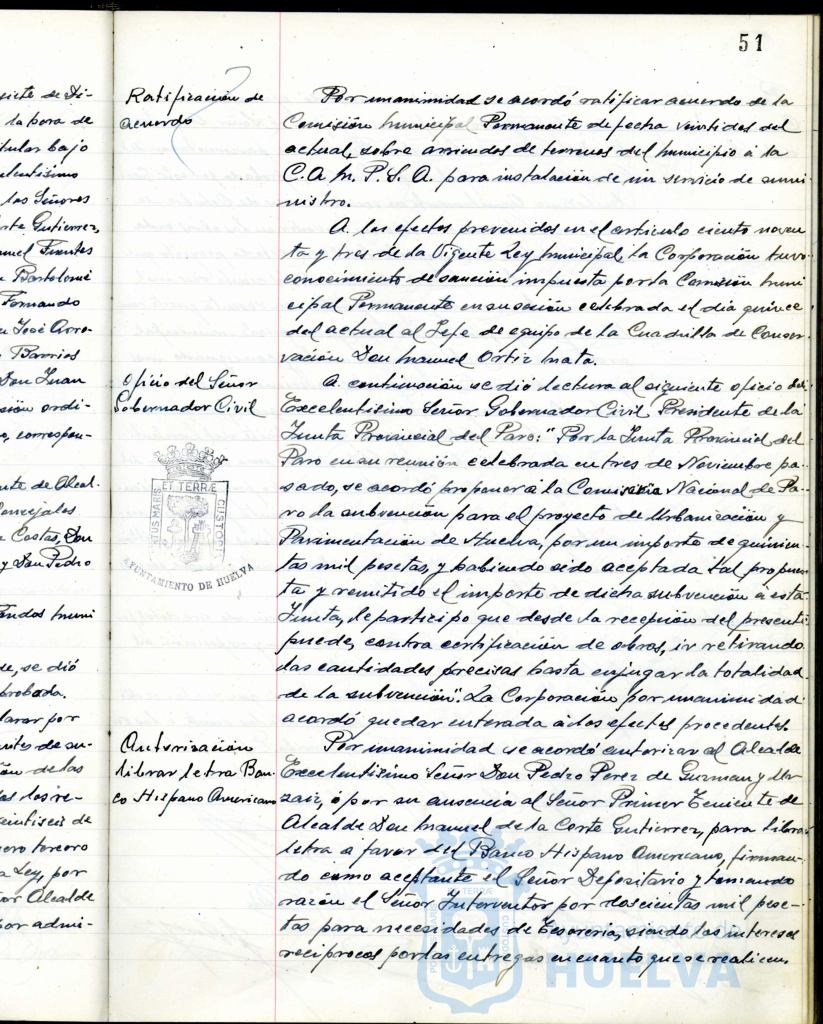 51
siete de Di-
la hora de
titular bajo
celentísimo
los Señores
orte Gutierrez,
nuel Fuentes
Bartolomé
Fernando
José Arro-
Barrios
Don Juan
sión ordi-
correspon-
nte de Alcal-
Concejales
Costas, Don
y Don Pedro
muni
de, se dió
probada.
larar por
de su-
de las
los re-
veintiseis de
tercero
a Ley, por
or Alcalde
por admi-
Ratificación de
acuerdo
Oficio del Señor
Gobernador Civil
ET TERRÆ
CUSTODI
AYUNTAMIENTO DE HUELVA
Autorización
librar letra Ban-
co Hispano Americano
Por unanimidad se acordó ratificar acuerdo de la
Comisión Municipal Permanente de fecha veintidos del
actual, sobre arriendos de terrenos del municipio á la
C.A.M.P.S.A. para instalación de un servicio de sumi-
nistro.
A los efectos prevenidos en el artículo ciento noven
ta y tres de la Vigente Ley Municipal, la Corporación tuvo
conocimiento de sanción impuesta por la Comisión Muni
cipal Permanente en su sesión celebrada el día quince
del actual al Jefe de equipo de la Cuadrilla de Conser-
vación Don Manuel Ortiz Mata.
A continuación se dió lectura al siguiente oficio del
Excelentísimo Señor Gobernador Civil Presidente de la
Junta Provincial del Paro: "Por la Junta Provincial del
Paro en su reunión celebrada en tres de Noviembre pa-
sado, se acordó proponer á la Comisaría Nacional de Pa-
ro la subvención para el proyecto de Urbanización y
Pavimentación de Huelva, por un importe de quinien-
tas mil pesetas, y habiendo sido aceptada tal propues-
ta y remitido el importe de dicha subvención á esta
Junta, le participo que desde la recepción del presente
puede, contra certificación de obras, ir retirando
las cantidades precisas hasta enjugar la totalidad
de la subvención". La Corporación por unanimidad
acordó quedar enterada á los efectos procedentes.
Por unanimidad se acordó autorizar al Alcalde
Excelentísimo Señor Don Pedro Perez de Guzman y Ur
zaiz, ó por su ausencia al Señor Primer Teniente de
Alcalde Don Manuel de la Corte Gutierrez, para librar
letra a favor del Banco Hispano Americano, firman-
do como aceptante el Señor Depositario y tomando
razón el Señor Interventor por doscientas mil pese-
tas para necesidades de Tesorería, siendo los intereses
recíprocos por las entregas en cuanto que se realicen,
HUELVA